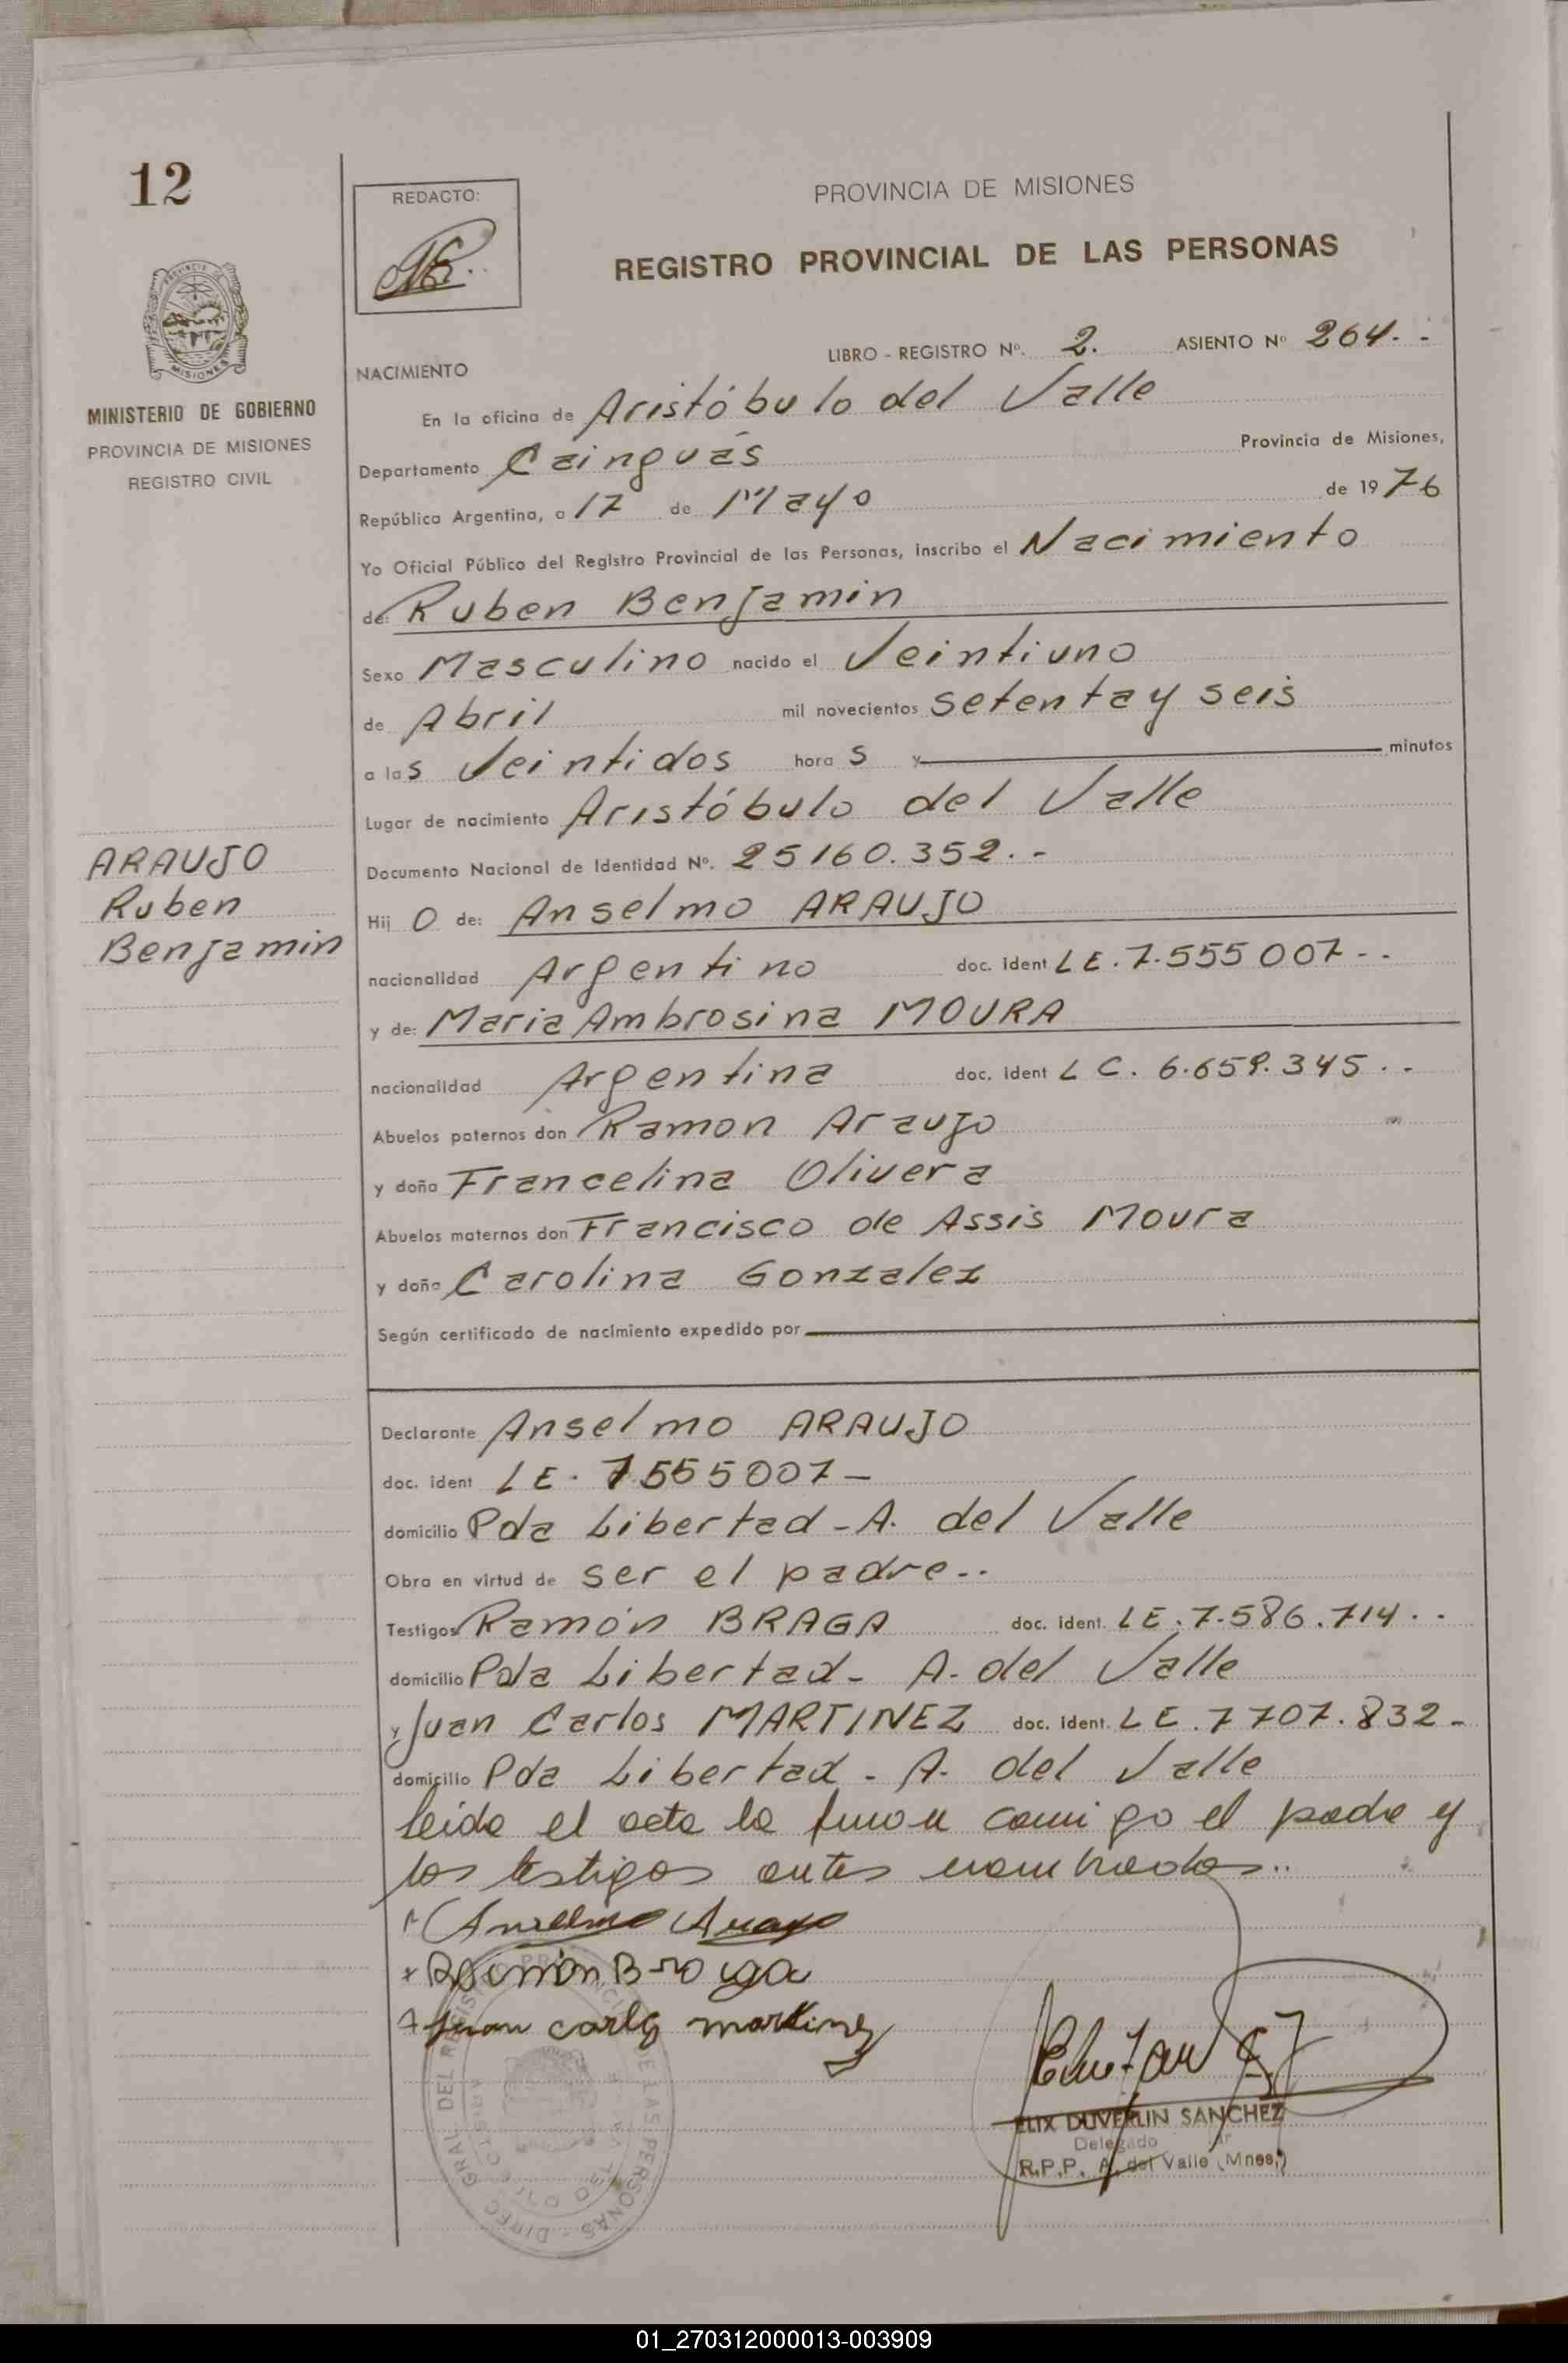 12
REDACTO:
PROVINCIA DE MISIONES
REGISTRO PROVINCIAL DE LAS PERSONAS
MISIONES
MINISTERIO DE GOBIERNO
PROVINCIA DE MISIONES
REGISTRO CIVIL
LIBRO - REGISTRO Nº. 2. ASIENTO Nº 264. -
NACIMIENTO
En la oficina de Aristóbulo del Valle
Departamento Cainguás Provincia de Misiones,
República Argentina, a 17 de Mayo de 1976
Yo Oficial Público del Registro Provincial de las Personas, inscribo el Nacimiento
de: Ruben Benjamin
Sexo Masculino nacido el Veintiuno
de Abril mil novecientos setenta y seis
a las Veintidos horas y minutos
Lugar de nacimiento Aristóbulo del Valle
Documento Nacional de Identidad Nº. 25160.352. -
ARAUJO
Ruben
Benjamin
Hijo de: Anselmo ARAUJO
nacionalidad Argentino doc. ident LE. 7.555007 - -
y de: Maria Ambrosina MOURA
nacionalidad Argentina doc. ident LC. 6.659.345 . -
Abuelos paternos don Ramon Araujo
y doña Francelina Olivera
Abuelos maternos don Francisco de Assis Moura
y doña Carolina Gonzalez
Según certificado de nacimiento expedido por
Declarante Anselmo ARAUJO
doc. ident LE. 7555007 -
domicilio Pda Libertad - A. del Valle
Obra en virtud de ser el padre - .
Testigos Ramón BRAGA doc. ident. LE. 7.586.714 . .
domicilio Pda Libertad - A. del Valle
y Juan Carlos MARTINEZ doc. ident. LE. 7707.832 -
domicilio Pda Libertad - A. del Valle
leida el acta la firman conmigo el padre y
los testigos antes nombrados..
Anselmo Araujo
Ramón Braga
Juan carlos martinez
ELIX DUVERLIN SANCHEZ
Delegado
R.P.P. A. del Valle (Mnes.)
01_270312000013-003909